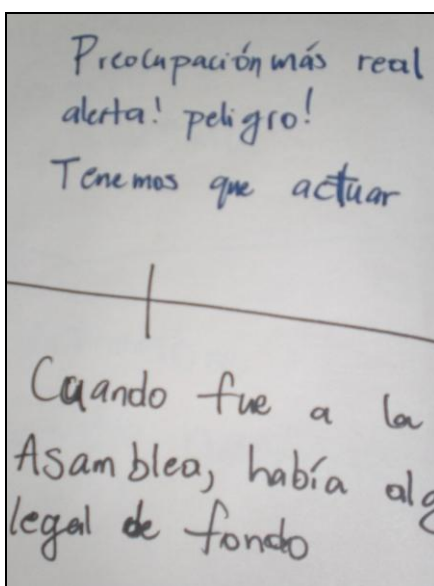 Preocupación más real
alerta! peligro!
Tenemos que actuar
Cuando fue a la
Asamblea, había alg
legal de fondo